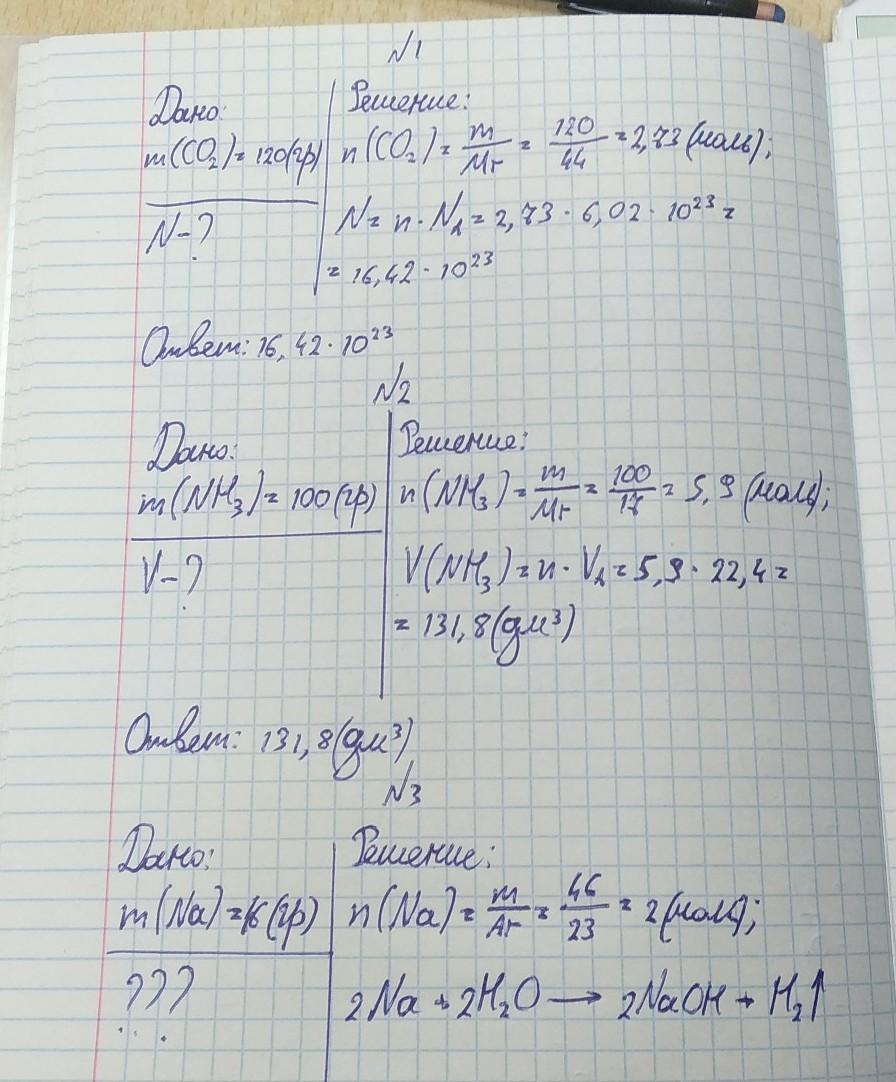 N1
Дано:
m(CO₂)=120(гр)
N-?
Решение:
n(CO₂)= m/Mr = 120/44 =2,73(моль);
N= n·N_A=2,73·6,02·10²³=
= 16,42·10²³
Ответ: 16,42·10²³
N2
Дано:
m(NH₃)=100(гр)
V-?
Решение:
n(NH₃)= m/Mr = 100/17 = 5,9 (моль);
V(NH₃)=n·V_A=5,9·22,4=
= 131,8(дм³)
Ответ: 131,8(дм³)
N3
Дано:
m(Na)=46(гр)
???
Решение:
n(Na)= m/Ar = 46/23 = 2(моль);
2Na + 2H₂O → 2NaOH + H₂↑